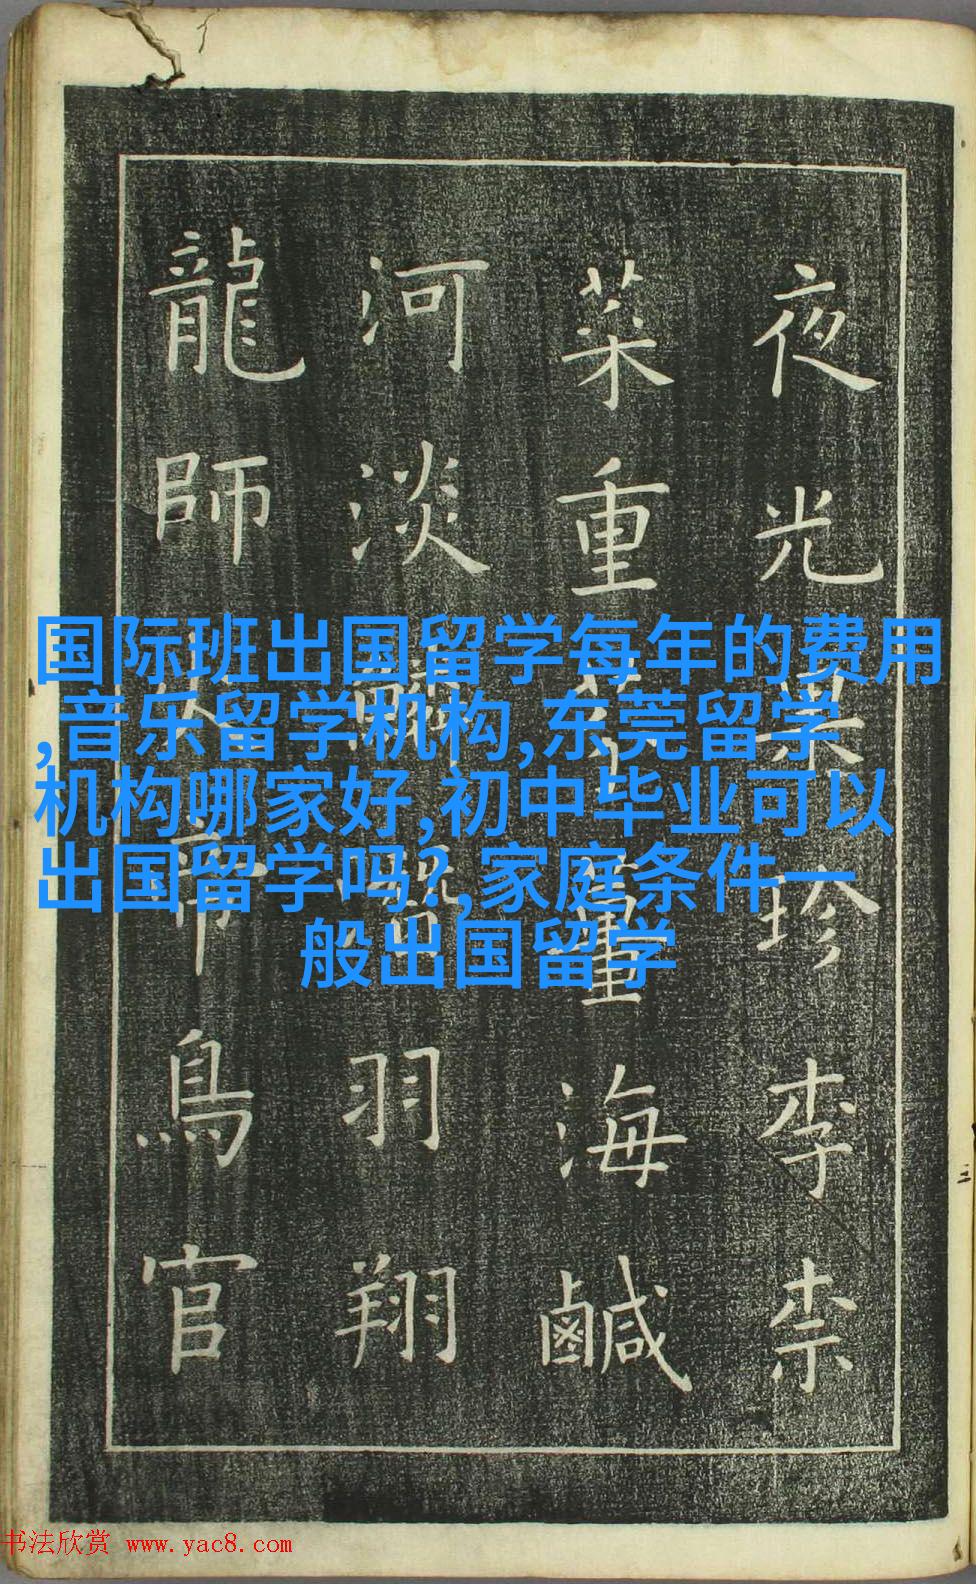 国际班出国留学每年的费用
,音乐留学机构,东莞留学
机构哪家好,初中毕业可以
出国留学吗?,家庭条件一
般出国留学
夜光果珍李柰
菜重芥薑海鹹
河淡鱗潛羽翔
龍師火帝鳥官
书法欣赏 www.yac8.com